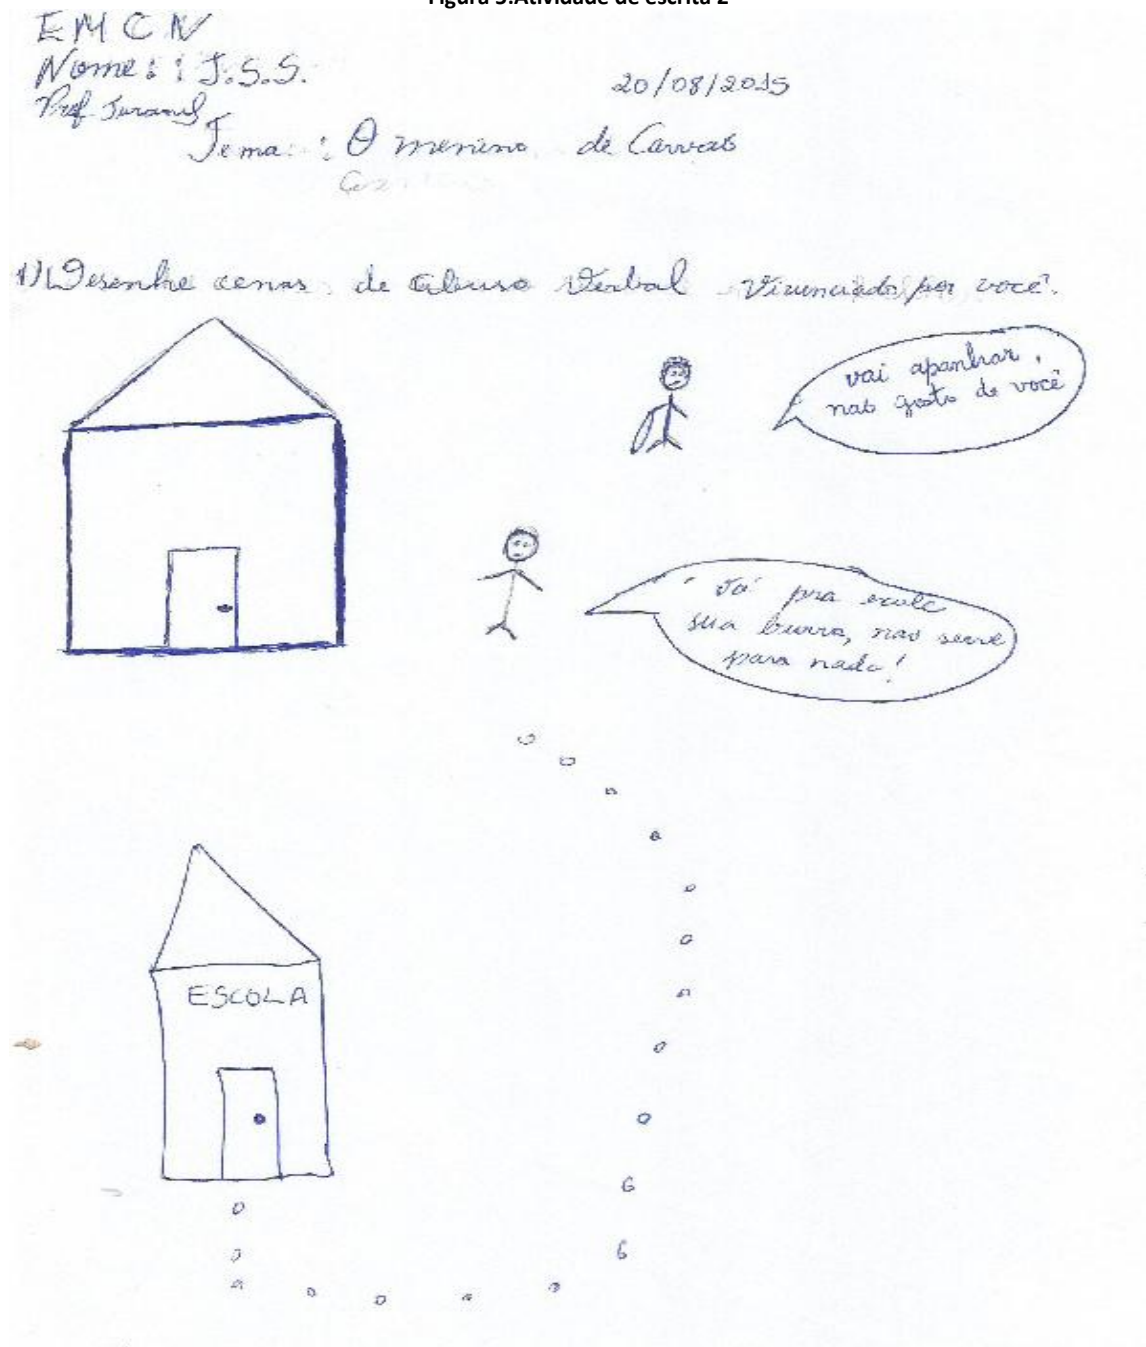 Figura 5:Atividade de escrita 2
EMCN
Nome: : J.S.S.
20/08/2015
Prof. Juranil
Tema: : O menino de Carvão
1) Desenhe cenas de abuso Verbal Vivenciado por você.
vai apanhar,
nao gosto de você
Vá pra escole
sua burra, nao serve
para nada!
ESCOLA